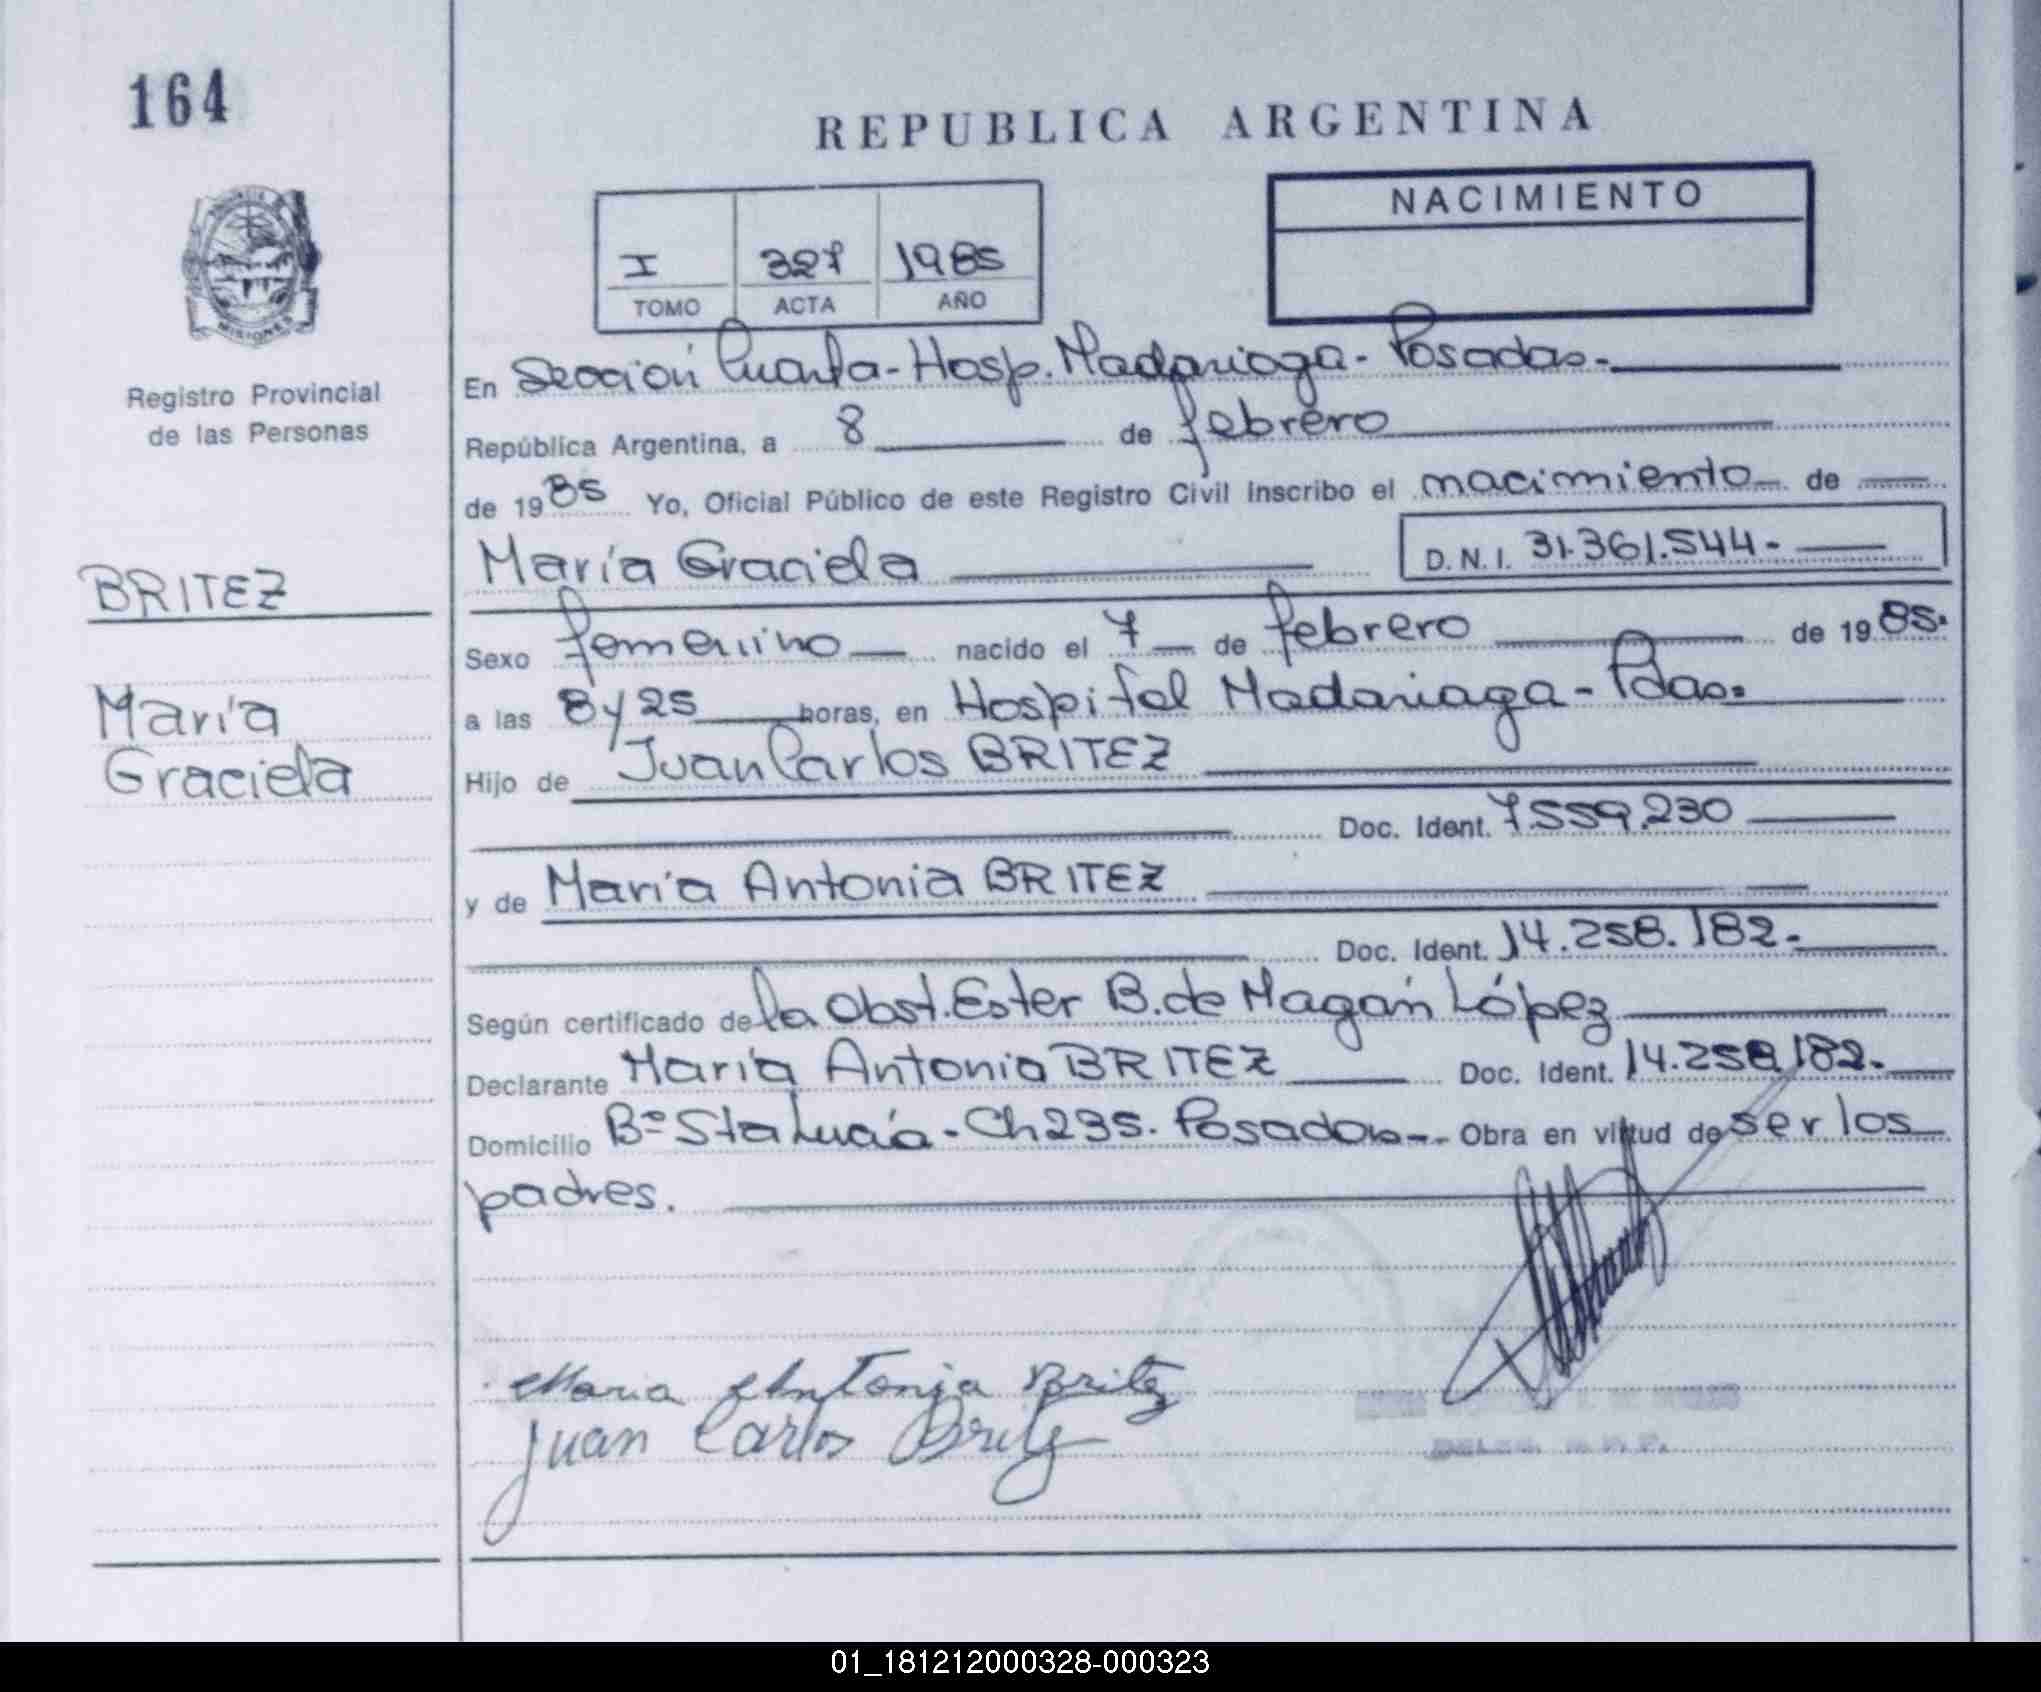 164
REPUBLICA ARGENTINA
NACIMIENTO
I 327 1985
TOMO ACTA AÑO
MISIONES
Registro Provincial
de las Personas
En Sección Cuarta - Hosp. Madariaga - Posadas.
República Argentina, a 8 de febrero
de 1985 Yo, Oficial Público de este Registro Civil inscribo el nacimiento de
María Graciela D.N.I. 31.361.544.-
BRITEZ
María
Graciela
Sexo femenino nacido el 7 de febrero de 1985.
a las 8 y 25 horas, en Hospital Madariaga - Pdas.
Hijo de Juan Carlos BRITEZ
Doc. Ident. 7.559.230
y de María Antonia BRITEZ
Doc. Ident. 14.258.182.-
Según certificado de la Obst. Ester B. de Magán López
Declarante María Antonia BRITEZ Doc. Ident. 14.258.182.-
Domicilio Bº Sta Lucía - Ch 235. Posadas - Obra en virtud de ser los
padres.
Maria Antonia Britez
Juan Carlos Britez
01_181212000328-000323